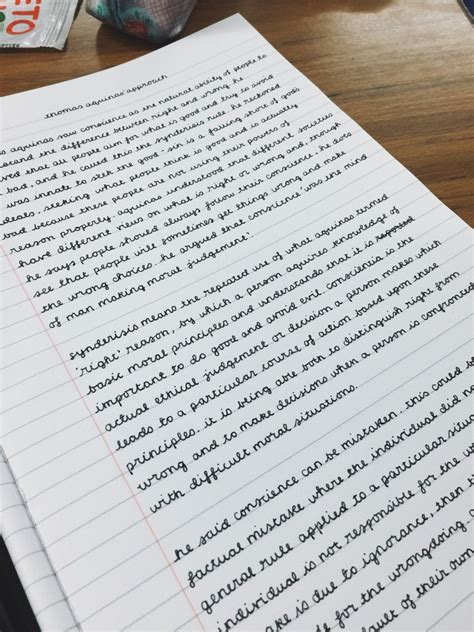 ETO
thomas aquinas' approach
s aquinas saw conscience as the natural ability of people to
rstand the difference between right and wrong. he
ved that all people aim for what is good and try to avoid
bad, and he called this the synderisis rule. he reckoned
was innate to seek the good - sin is a falling short of gods
ideals, seeking what people think is good and is actually
bad because these people are not using their powers of
reason properly. aquinas understood that different societies
have different views on what is right or wrong and, though
he says people should always follow their conscience, he does
see that people will sometimes get things wrong and make
the wrong choices. he argued that conscience 'was the mind
of man making moral judgement'.
synderisis means the repeated use of what aquinas termed
'right' reason, by which a person aquires knowledge of
basic moral principles and understands that it is
important to do good and avoid evil. conscientia is the
actual ethical judgement or decision a person makes which
leads to a particular course of action based upon these
principles. it is being able both to distinguish right from
wrong and to make decisions when a person is confronted
with difficult moral situations.
he said conscience can be mistaken. this could b
factual mistake where the individual did n
general rule applied to a particular situa
individual is not responsible for the w
ake is due to ignorance, then t
de for the wrongdoing a
ault of their own